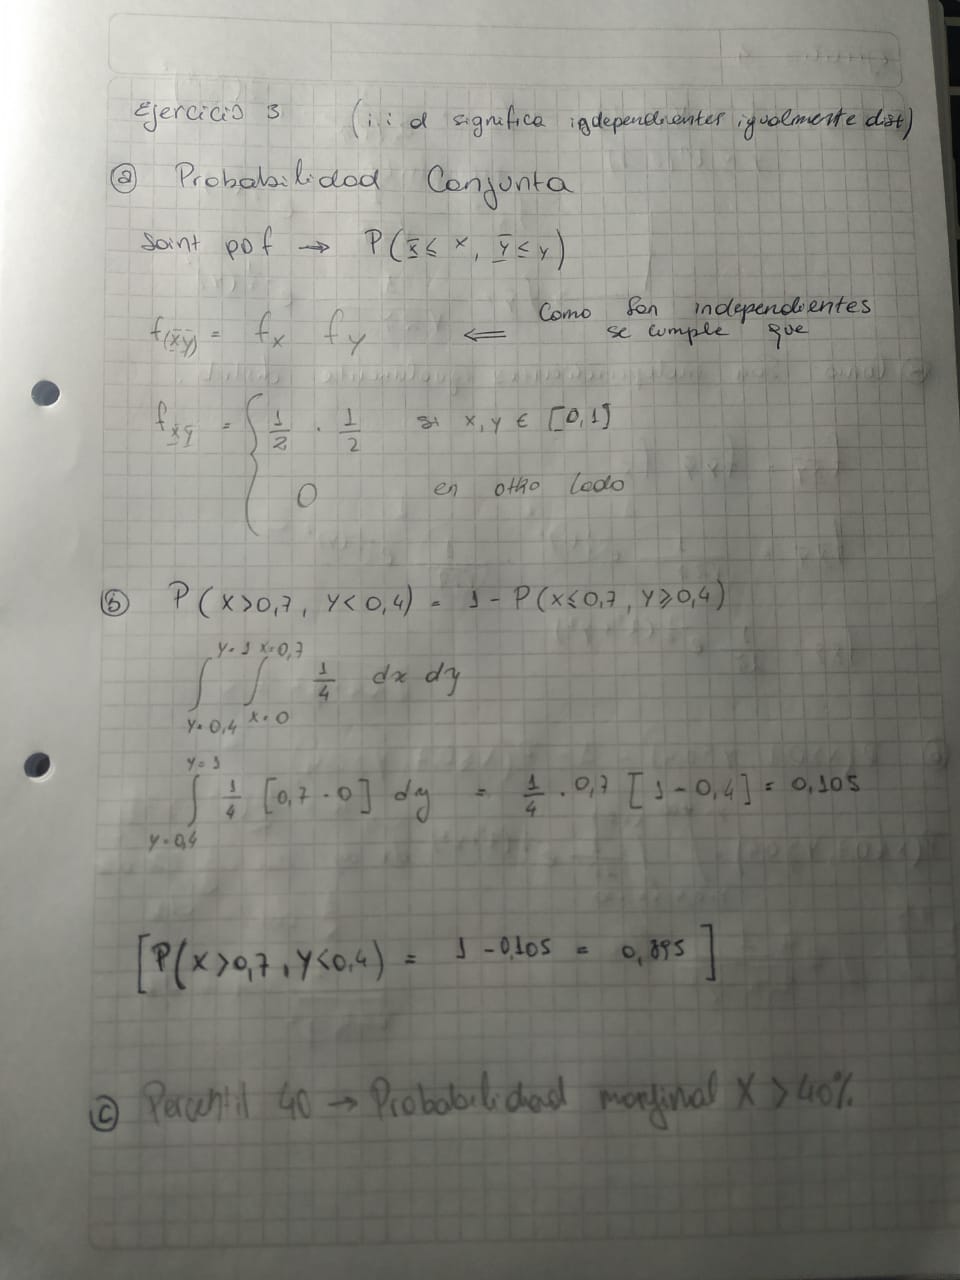 Ejercicio 3 (i.i.d significa independientes igualmente dist)
ⓐ Probabilidad Conjunta
Joint pdf → P(X ≤ x, Y ≤ y)
f(x̄ȳ) = fx fy ⇐ Como son independientes
se cumple que
fxy = { 1/2 · 1/2 si x, y ∈ [0,1]
0 en otro lado
ⓑ P(X>0,7, Y<0,4) = 1 - P(X≤0,7, Y≥0,4)
∫_{y=0,4}^{y=1} ∫_{x=0}^{x=0,7} 1/4 dx dy
∫_{y=0,4}^{y=1} 1/4 [0,7 - 0] dy = 1/4 · 0,7 [1 - 0,4] = 0,105
[P(X>0,7, Y<0,4) = 1 - 0,105 = 0,895]
ⓒ Percentil 40 → Probabilidad marginal X > 40%